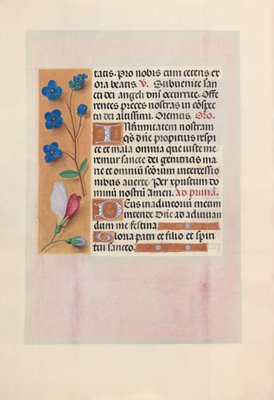 tatis. Pro nobis cum ceteris et
ora beatis. V. Subvenite san
cti dei angeli dñi occurrite. Offe
rentes preces nostras in cõspe
ctu dei altissimi. Oremus. Oro.
Infirmitatem nostram
qs dñe propicius respi
ce et mala omnia que iuste me
remur sancte dei genitricis ma
rie et omniũ scõrum intercessio
nibus averte. Per xpristum do
minũ nostrũ Amen. Ad primã.
Deus in adiutoriũ meum
intende Dñe ad adiuvan
dum me festina
Gloria patri et filio et spiri
tui sancto.